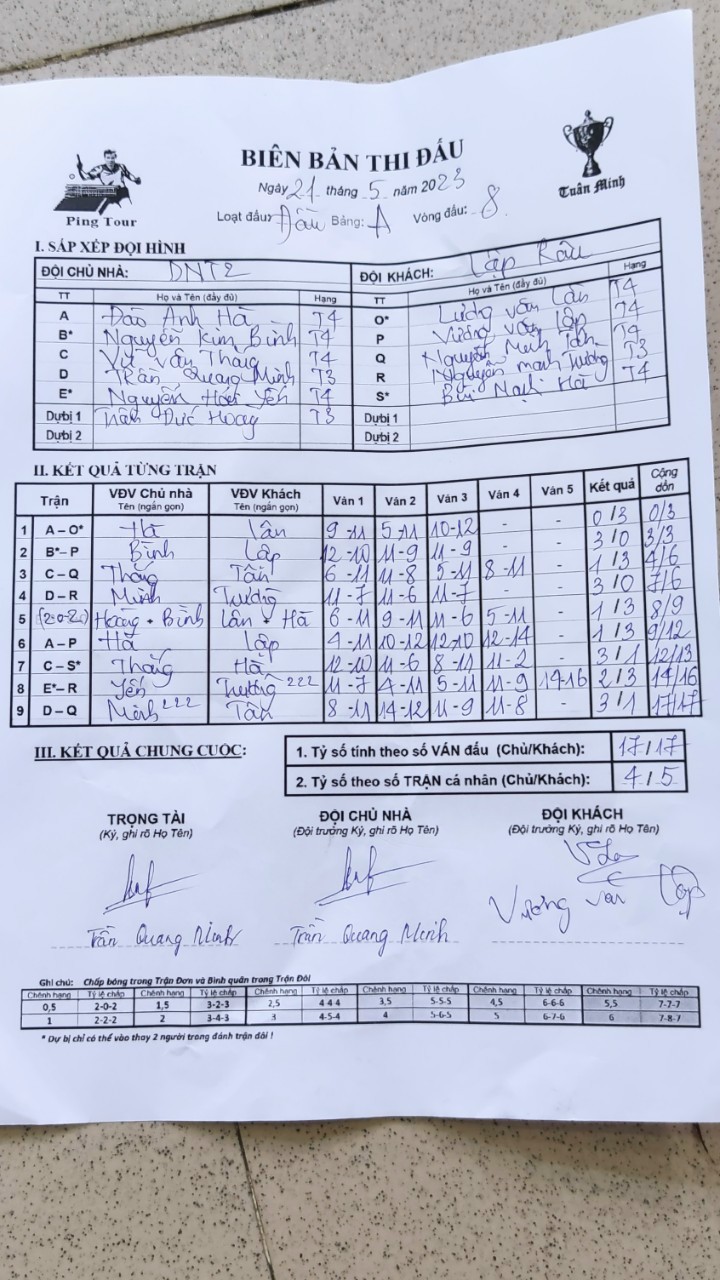 BIÊN BẢN THI ĐẤU
Ping Tour
Tuân Minh
Ngày 21 tháng 5 năm 2023
Loạt đấu: Đầu Bảng: A Vòng đấu: 8
I. SẮP XẾP ĐỘI HÌNH
ĐỘI CHỦ NHÀ: DNT2 ĐỘI KHÁCH: Lập Râu
TT Họ và Tên (đầy đủ) Hạng TT Họ và Tên (đầy đủ) Hạng
A Đào Anh Hà T4 O* Lương Văn Lân T4
B* Nguyễn Kim Bình T4 P Vương Văn Lập T4
C Vũ Văn Thắng T4 Q Nguyễn Minh Tân T4
D Trần Quang Minh T3 R Nguyễn Mạnh Tường T3
E* Nguyễn Hải Yến T4 S* Bùi Hà T4
Dự bị 1 Trần Đức Hoàng T3 Dự bị 1
Dự bị 2 Dự bị 2
II. KẾT QUẢ TỪNG TRẬN
Trận VĐV Chủ nhà Tên (ngắn gọn) VĐV Khách Tên (ngắn gọn) Ván 1 Ván 2 Ván 3 Ván 4 Ván 5 Kết quả Cộng dồn
1 A – O* Hà Lân 9-11 5-11 10-12 - - 0/3 0/3
2 B* – P Bình Lập 12-10 11-9 11-9 - - 3/0 3/3
3 C – Q Thắng Tân 6-11 11-8 5-11 8-11 - 1/3 4/6
4 D – R Minh Tường 11-7 11-6 11-7 - - 3/0 7/6
5 (2-0-2) Hoàng + Bình Lân + Hà 6-11 9-11 11-6 5-11 - 1/3 8/9
6 A – P Hà Lập 4-11 10-12 12-10 12-14 - 1/3 9/12
7 C – S* Thắng Hà 12-10 11-6 8-11 11-2 - 3/1 12/13
8 E* – R Yến Tường 222 11-7 4-11 5-11 11-9 14-16 2/3 14/16
9 D – Q Minh 222 Tân 8-11 14-12 11-9 11-8 - 3/1 17/17
III. KẾT QUẢ CHUNG CUỘC:
1. Tỷ số tính theo số VÁN đấu (Chủ/Khách): 17/17
2. Tỷ số theo số TRẬN cá nhân (Chủ/Khách): 4/5
TRỌNG TÀI ĐỘI CHỦ NHÀ ĐỘI KHÁCH
(Ký, ghi rõ Họ Tên) (Đội trưởng Ký, ghi rõ Họ Tên) (Đội trưởng Ký, ghi rõ Họ Tên)
Trần Quang Minh Trần Quang Minh Vương Văn Lập
Ghi chú: Chấp bóng trong Trận Đơn và Bình quân trong Trận Đôi
Chênh hạng Tỷ lệ chấp Chênh hạng Tỷ lệ chấp Chênh hạng Tỷ lệ chấp Chênh hạng Tỷ lệ chấp Chênh hạng Tỷ lệ chấp Chênh hạng Tỷ lệ chấp
0,5 2-0-2 1,5 3-2-3 2,5 4-4-4 3,5 5-5-5 4,5 6-6-6 5,5 7-7-7
1 2-2-2 2 3-4-3 3 4-5-4 4 5-6-5 5 6-7-6 6 7-8-7
* Dự bị chỉ có thể vào thay 2 người trong đánh trận đôi !